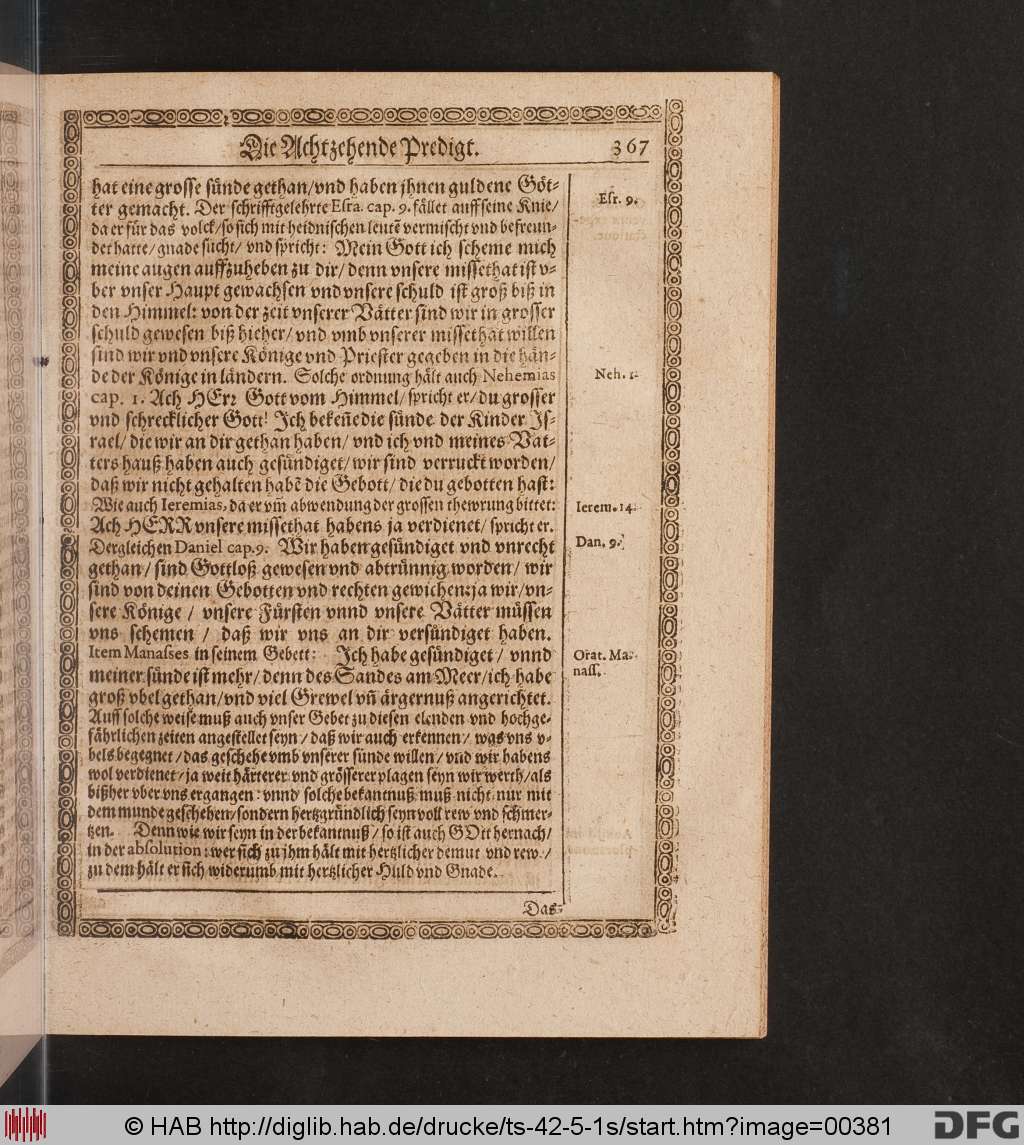 Die Achtzehende Predigt. 367
hat eine grosse sünde gethan/vnd haben jhnen guldene Göt-
ter gemacht. Der schrifftgelehrte Esra. cap. 9. fället auff seine Knie/
da er für das volck/so sich mit heidnischen leutẽ vermischt vnd befreun-
det hatte/gnade sucht/ vnd spricht: Mein Gott ich scheme mich
meine augen auffzuheben zu dir/ denn vnsere missethat ist v-
ber vnser Haupt gewachsen vnd vnsere schuld ist groß biß in
den Himmel: von der zeit vnserer Vätter sind wir in grosser
schuld gewesen biß hieher/ vnd vmb vnserer missethat willen
sind wir vnd vnsere Könige vnd Priester gegeben in die hän-
de der Könige in ländern. Solche ordnung hält auch Nehemias
cap. 1. Ach HErꝛ Gott vom Himmel/spricht er/du grosser
vnd schrecklicher Gott! Ich bekeñe die sünde der Kinder Js-
rael/ die wir an dir gethan haben/ vnd ich vnd meines Vat-
ters hauß haben auch gesündiget/ wir sind verruckt worden/
daß wir nicht gehalten habẽ die Gebott/ die du gebotten hast:
Wie auch Ieremias, da er vm̃ abwendung der grossen thewrung bittet:
Ach HERR vnsere missethat habens ja verdienet/ spricht er.
Dergleichen Daniel cap. 9. Wir haben gesündiget vnd vnrecht
gethan/ sind Gottloß gewesen vnd abtrünnig worden/ wir
sind von deinen Gebotten vnd rechten gewichen: ja wir/ vn-
sere Könige / vnsere Fürsten vnnd vnsere Vätter müssen
vns schemen / daß wir vns an dir versündiget haben.
Item Manasses in seinem Gebett: Ich habe gesündiget / vnnd
meiner sünde ist mehr/ denn des Sandes am Meer/ich habe
groß vbel gethan/vnd viel Grewel vñ ärgernuß angerichtet.
Auff solche weise muß auch vnser Gebet zu diesen elenden vnd hochge-
fährlichen zeiten angestellet seyn/ daß wir auch erkennen/ was vns v-
bels begegnet/ das geschehe vmb vnserer sünde willen/ vnd wir habens
wol verdienet/ ja weit härterer vnd grösserer plagen seyn wir werth/als
bißher vber vns ergangen: vnnd solche bekantnuß muß nicht nur mit
dem munde geschehen/sondern hertzgründlich seyn voll rew vnd schmer-
tzen. Denn wie wir seyn in der bekantnuß/ so ist auch GOtt hernach/
in der absolution: wer sich zu jhm hält mit hertzlicher demut vnd rew/
zu dem hält er sich widerumb mit hertzlicher Huld vnd Gnade.
Das
Esr. 9.
Neh. 1.
Ierem. 14.
Dan. 9.
Orat. Ma-
nass.
© HAB http://diglib.hab.de/drucke/ts-42-5-1s/start.htm?image=00381
DFG